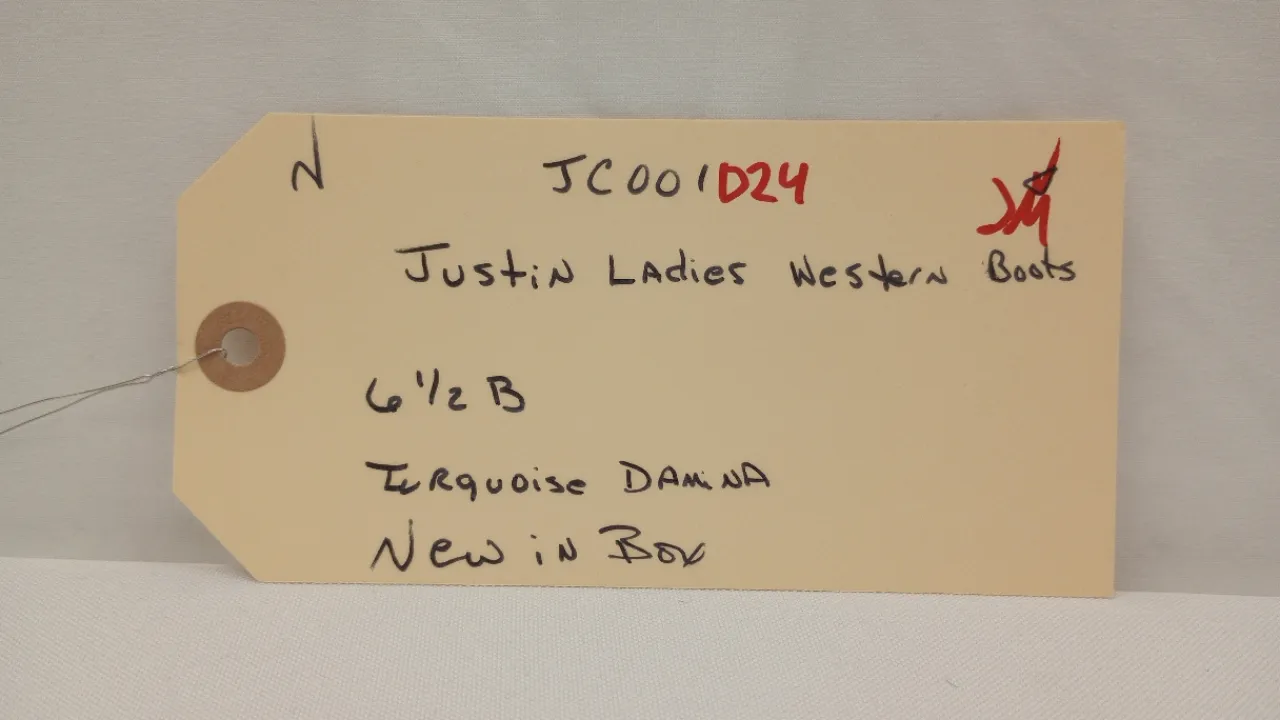 N JC001D24 JM
Justin Ladies Western Boots
6 1/2 B
Turquoise Damina
New in Box